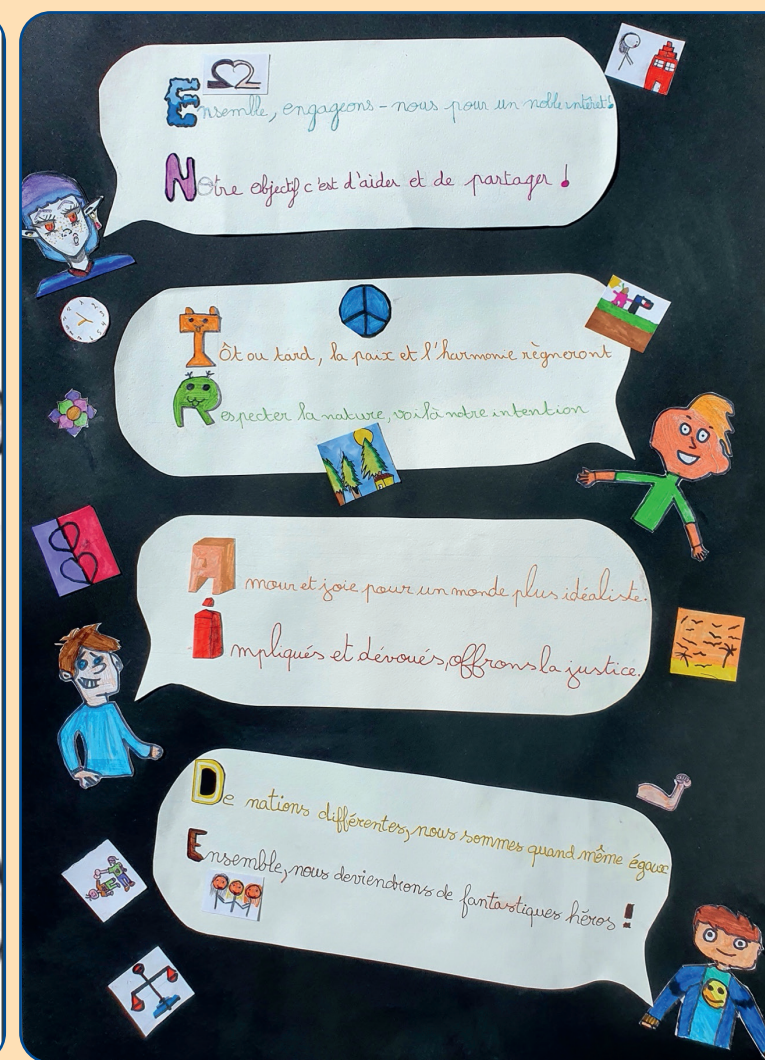 Ensemble, engageons-nous pour un noble intérêt!
Notre objectif c'est d'aider et de partager !
Tôt ou tard, la paix et l'harmonie règneront
Respecter la nature, voilà notre intention
Amour et joie pour un monde plus idéaliste.
Impliqués et dévoués, offrons la justice.
De nations différentes, nous sommes quand même égaux
Ensemble, nous deviendrons de fantastiques héros !